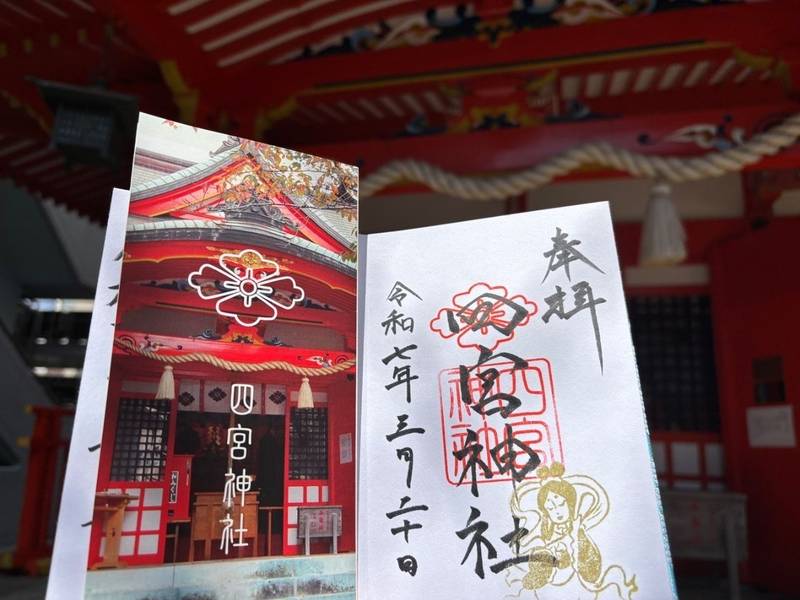 奉拝
四宮神社
四宮神社
令和七年三月二十日
四宮神社